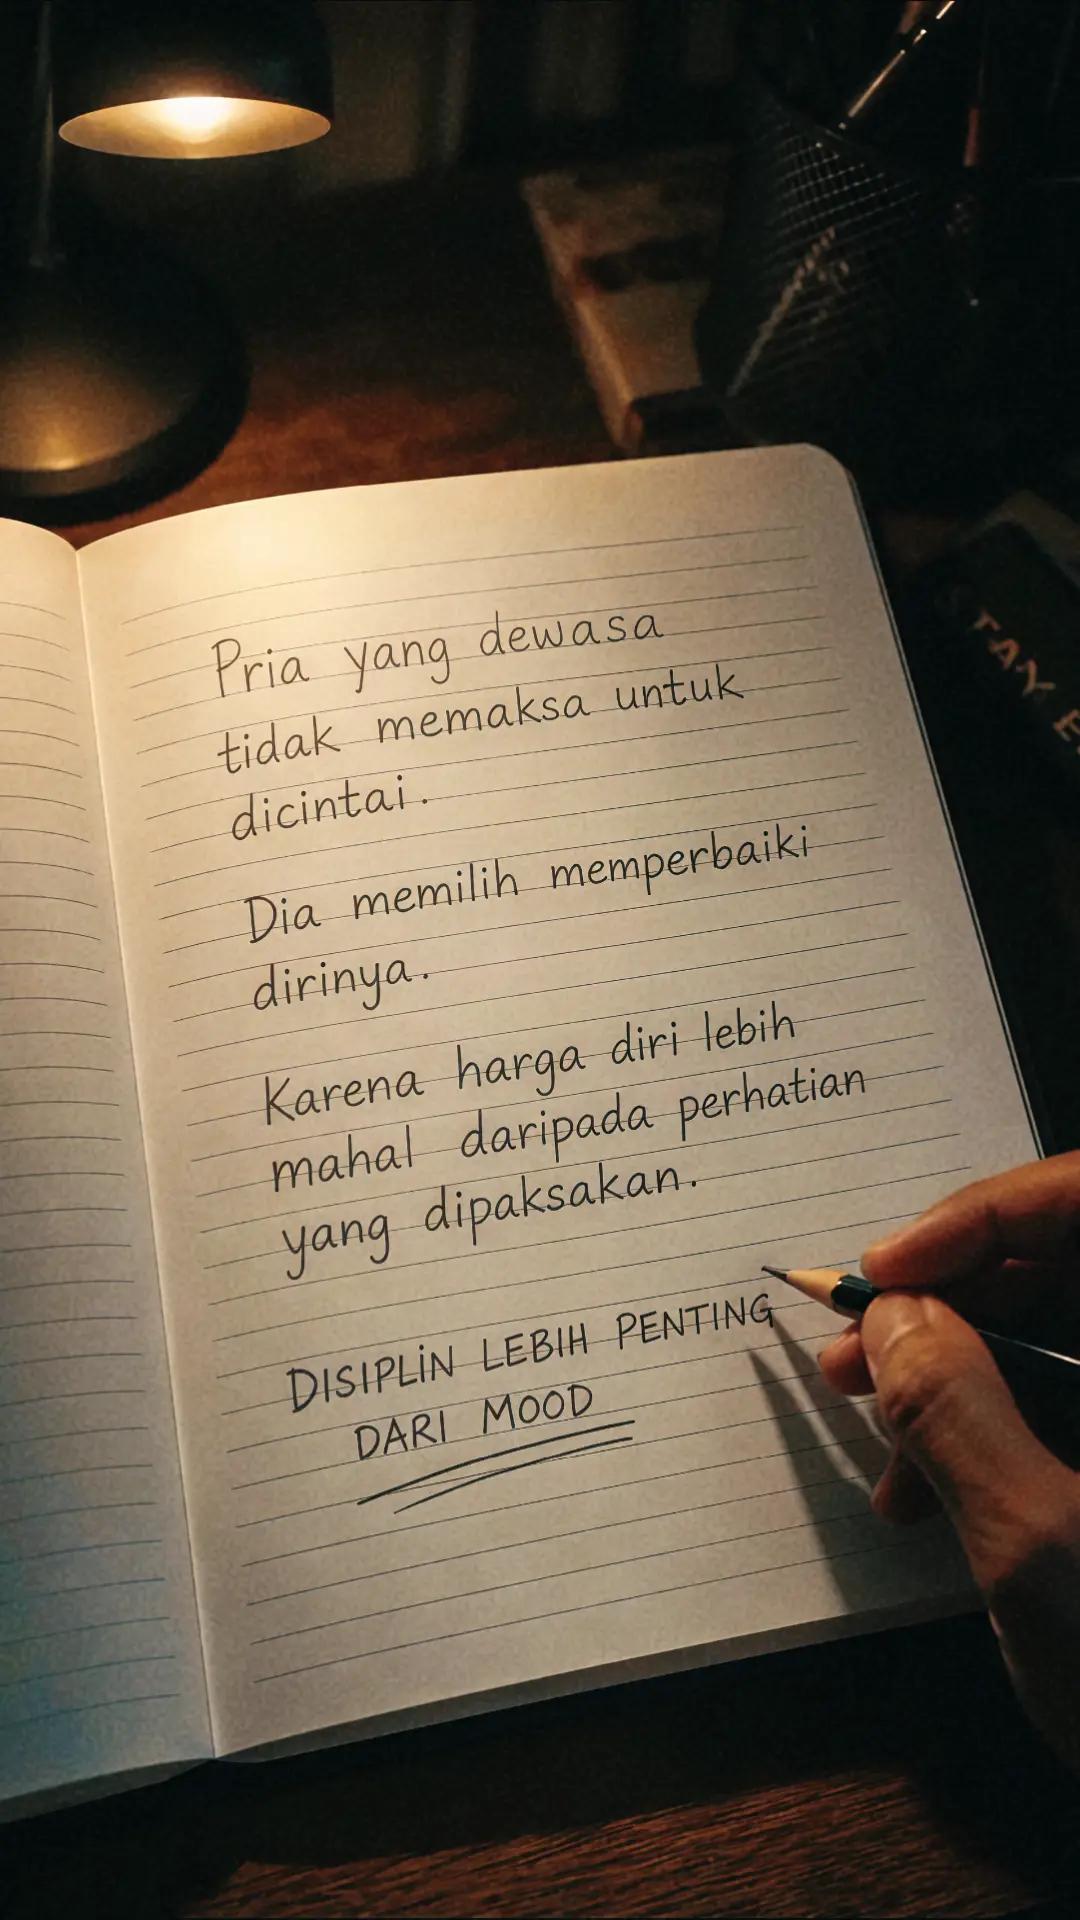 Pria yang dewasa
tidak memaksa untuk
dicintai.
Dia memilih memperbaiki
dirinya.
Karena harga diri lebih
mahal daripada perhatian
yang dipaksakan.
DISIPLIN LEBIH PENTING
DARI MOOD